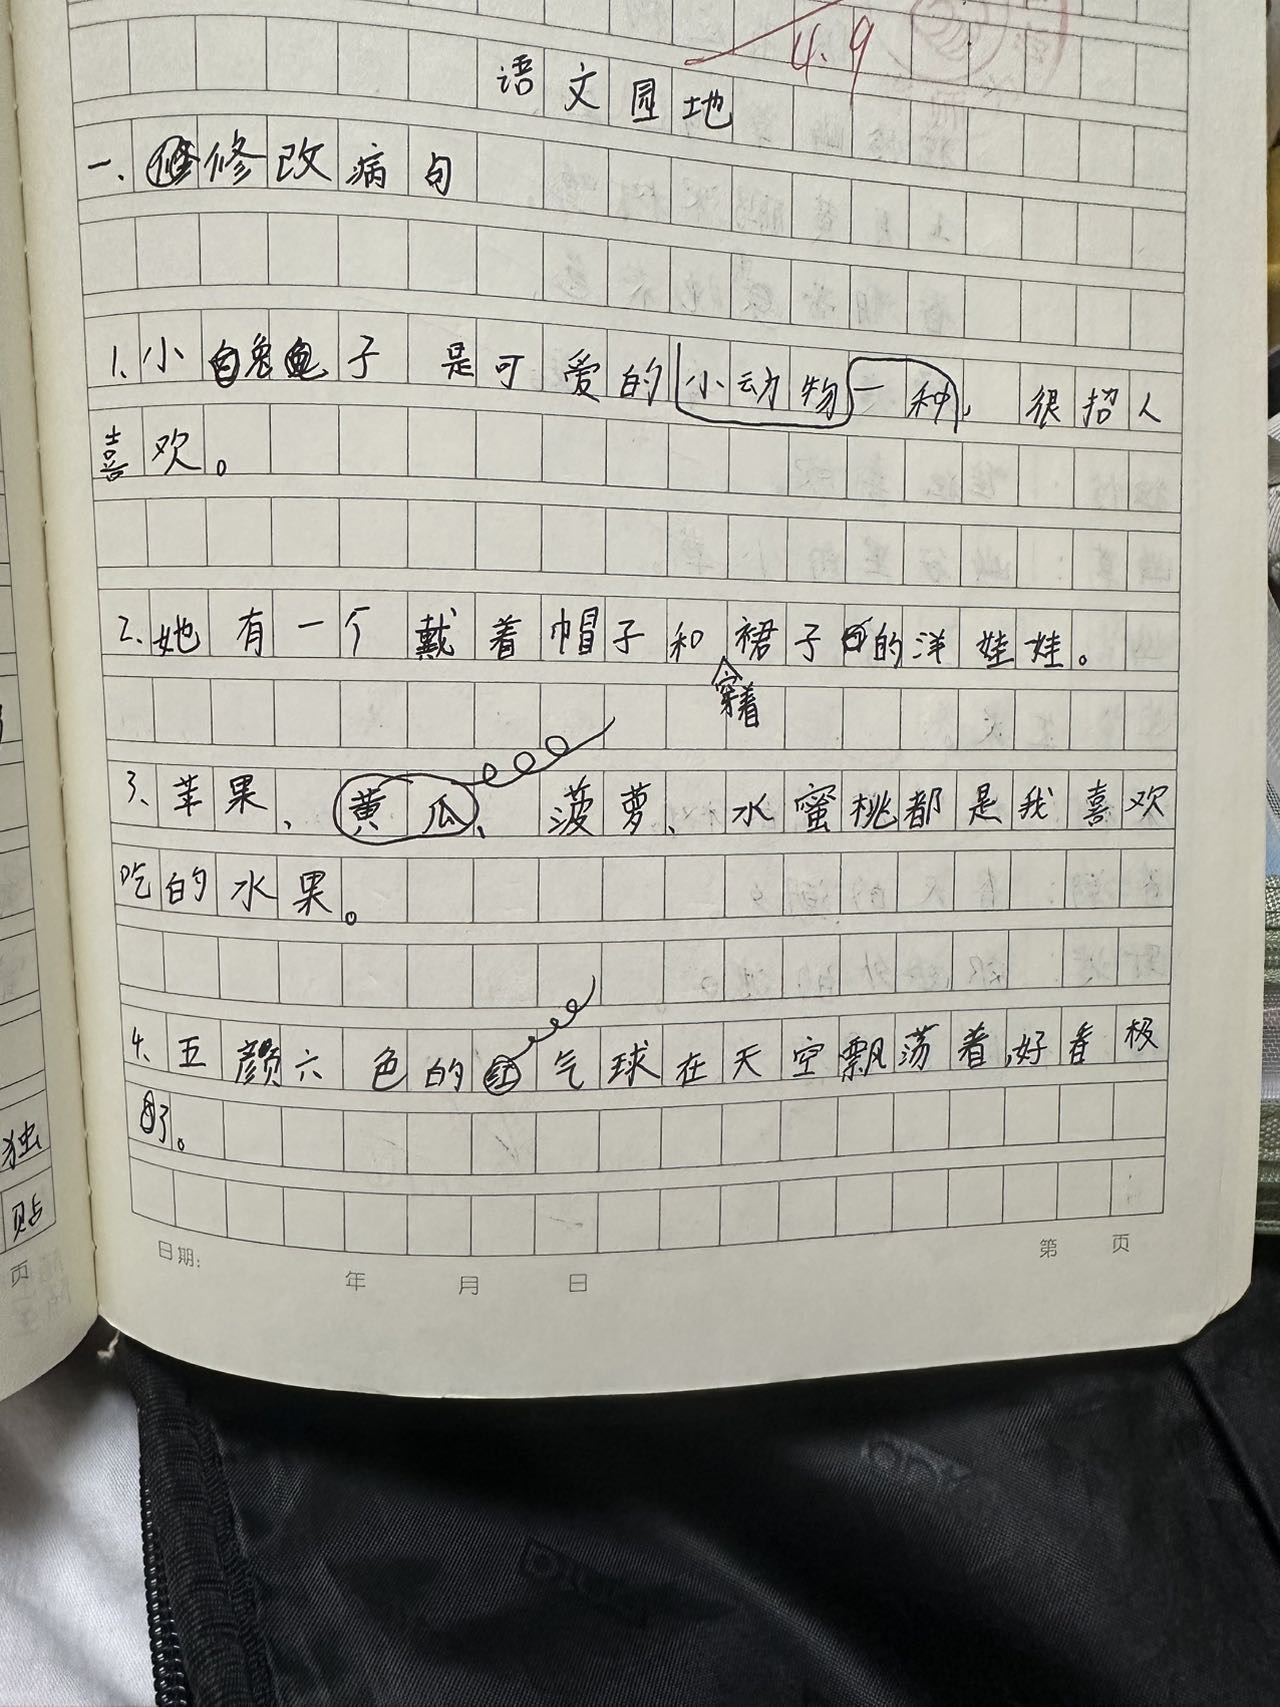 4.9
语文园地
一、修改病句
1.小兔子是可爱的小动物一种，很招人
喜欢。
2.她有一个戴着帽子和裙子的洋娃娃。
穿着
3、苹果、黄瓜、菠萝、水蜜桃都是我喜欢
吃的水果。
4、五颜六色的红气球在天空飘荡着，好看极
了。
日期： 年 月 日 第 页
独
贴
页